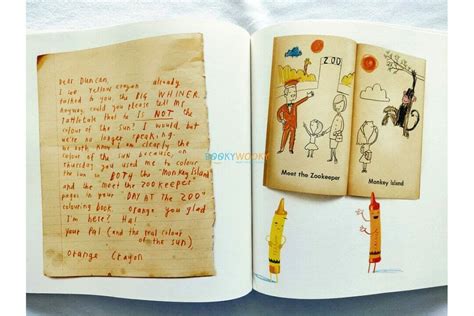 Dear Duncan,
I see Yellow Crayon already
talked to you, the BIG WHINER.
Anyway, could you please tell Mr.
Tattletale that he IS NOT the
colour of the sun? I would, but
we're no longer speaking.
We both know I am clearly the
colour of the sun because, on
Thursday you used me to colour
the sun on BOTH the "Monkey Island"
and the "meet the zookeeper"
pages in your "DAY AT THE ZOO"
colouring book. Orange you glad
I'm here? Ha!
Your pal (and the real colour
of the sun),
Orange Crayon
BOOKYWOOKY
ZOO
Meet the Zookeeper
Monkey Island